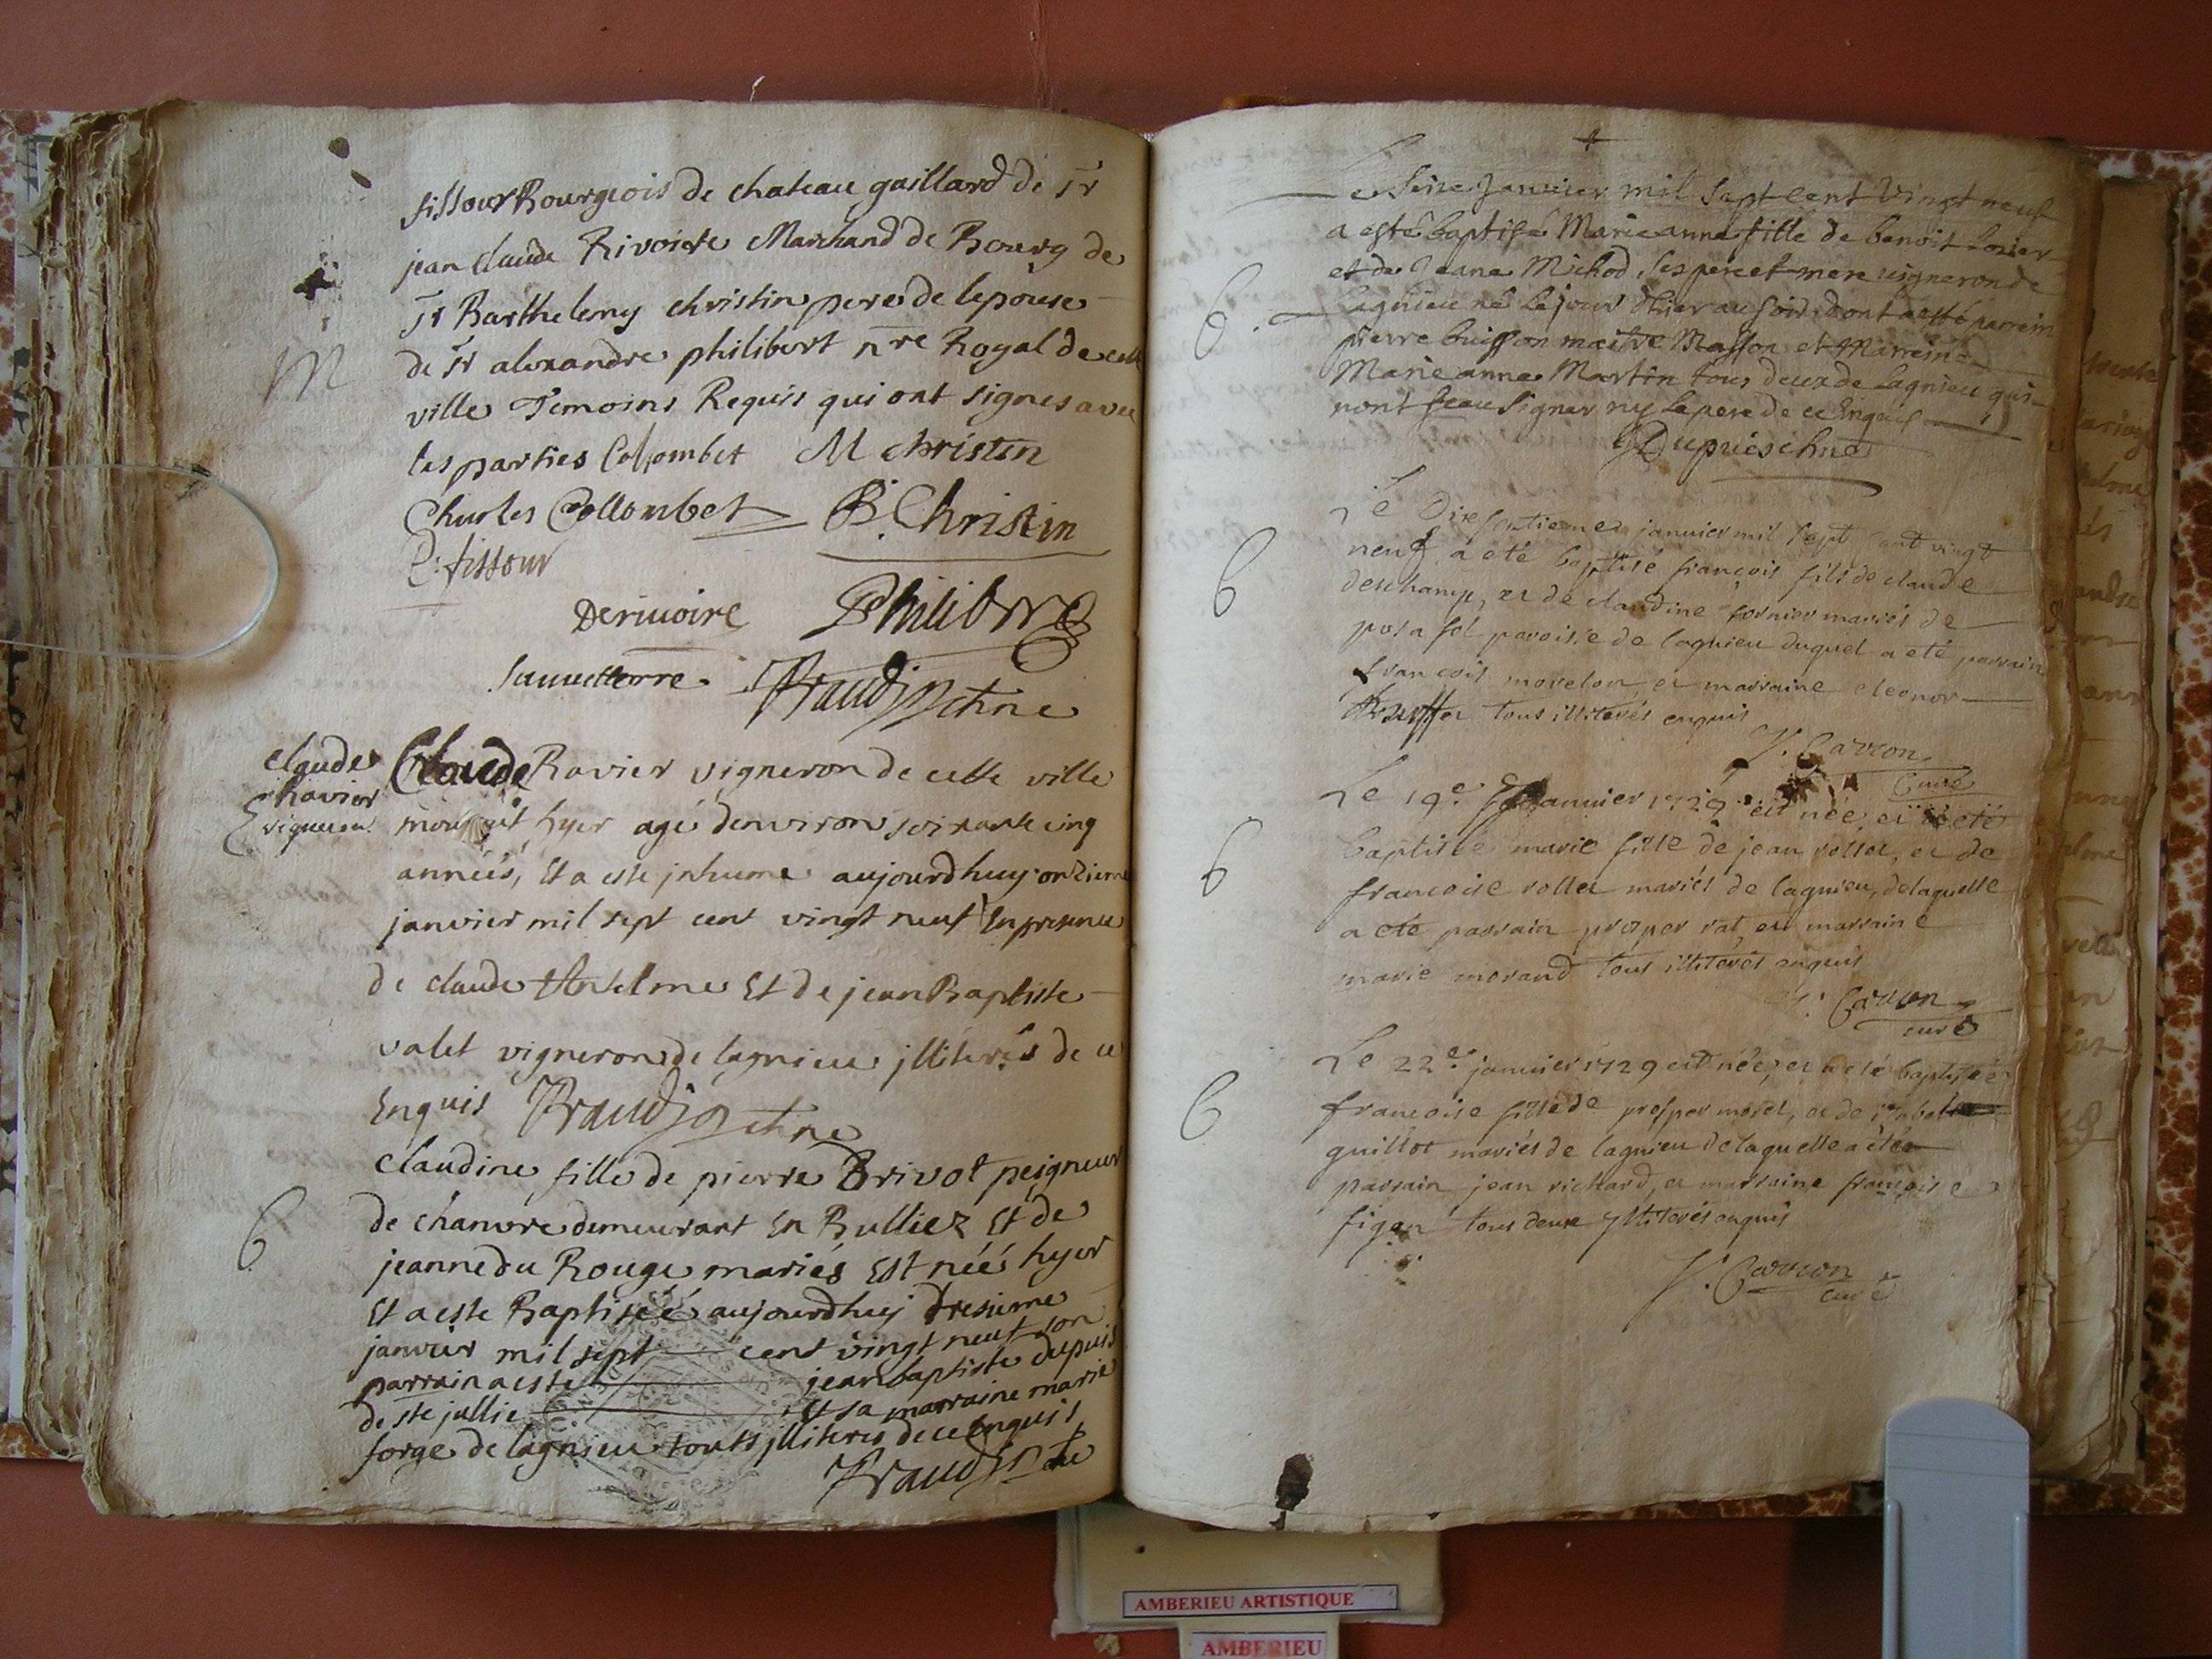 fissour Bourgeois de chateau gaillard de Sr
jean claude Rivoire Marchand de Bourg de
Sr Barthelemy christin pere de lepouse
de Sr alexandre philibert nre Royal de cette
M
ville Temoins Requis qui ont signes avec
les parties Collombet M christin
Charles Collombet B. Christin
fissour
Derivoire Philibert
Sauveterre
claude
Ravier
vigneron
Claude Ravier vigneron de cette ville
mourut hyer agé denviron soixante cinq
années, Et a este jnhume aujourdhuy onzieme
janvier mil sept cent vingt neuf En presence
de claude Anselme Et de jean Baptiste
valet vigneron de lagnieu jlliterés de ce
Enquis
B
claudine fille de pierre Brivot peigneur
de chanvre demeurant En Bulliez Et de
jeanne du Rouge mariés Est néé hyer
Et a este Baptiséé aujourdhuy tresieme
janvier mil sept cent vingt neuf son
parrain a este jean baptiste dupuis
de ste jullie Et sa marraine marie
forge de lagnieu touts jlliteres de ce Enquis
Le Seise Janvier mil Sept Cent Vingt neuf
a esté baptisé Marie anne fille de benoit
et de Jeane Michod ses pere et mere vigneron de
B
Lagnieu né Le jour dhier au soir dont a esté parrein
pierre buisson maitre Masson et Marreine
Marie anne Martin tous deux de Lagnieu qui
nont sceau signer ny le pere de ce Enquis
Le Dixseptieme janvier mil sept cent vingt
B
neuf a été baptisé françois fils de claude
deschamp, et de claudine fornier mariés de
posafol paroisse de lagnieu duquel a eté parrain
françois morelon et marraine eleonor
tous illiterés enquis
J. Carron
Curé
Le 19e janvier 1729 est née, et a eté
B
baptisée marie fille de jean rollet, et de
francoise rollet mariés de lagnieu, de laquelle
a eté parrain prosper rat, et marraine
marie morand tous illiterés enquis
J. Carron
curé
Le 22e janvier 1729 est née, et a eté baptisée
B
francoise fille de prosper morel, et de isabelle
guillot mariés de lagnieu de laquelle a été
parrain jean richard, et marraine françoise
figen tous deux illiterés enquis
J. Carron
curé
AMBERIEU ARTISTIQUE
AMBERIEU